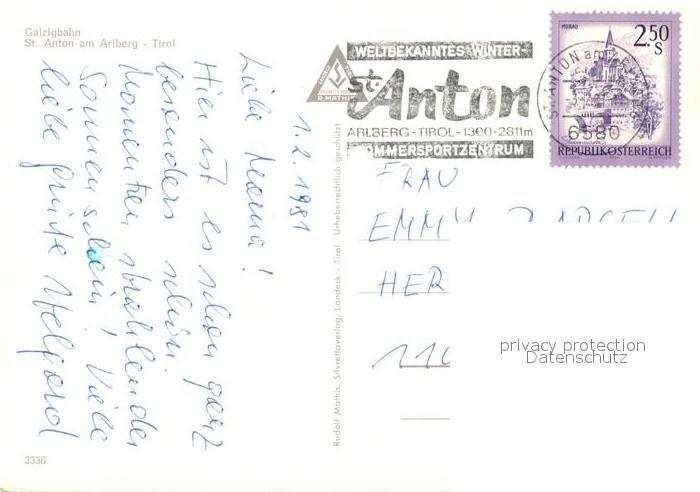 Galzigbahn
St. Anton am Arlberg - Tirol
1.2.1981
Liebe Mama!
Hier ist es schon ganz
besonders schön.
Momentan strahlender
Sonnenschein! Viele
liebe Grüße Helgard
Rudolf Mathis, Silvrettaverlag, Landeck - Tirol. Urheberrechtlich geschützt
3336
R. MATHIS
WELTBEKANNTES WINTER-
St. Anton
ARLBERG-TIROL-1300-2811m
SOMMERSPORTZENTRUM
ST. ANTON am ARLBERG
6580
MURAU
2.50
S
REPUBLIK ÖSTERREICH
FRAU
EMMY
HER
110
privacy protection
Datenschutz